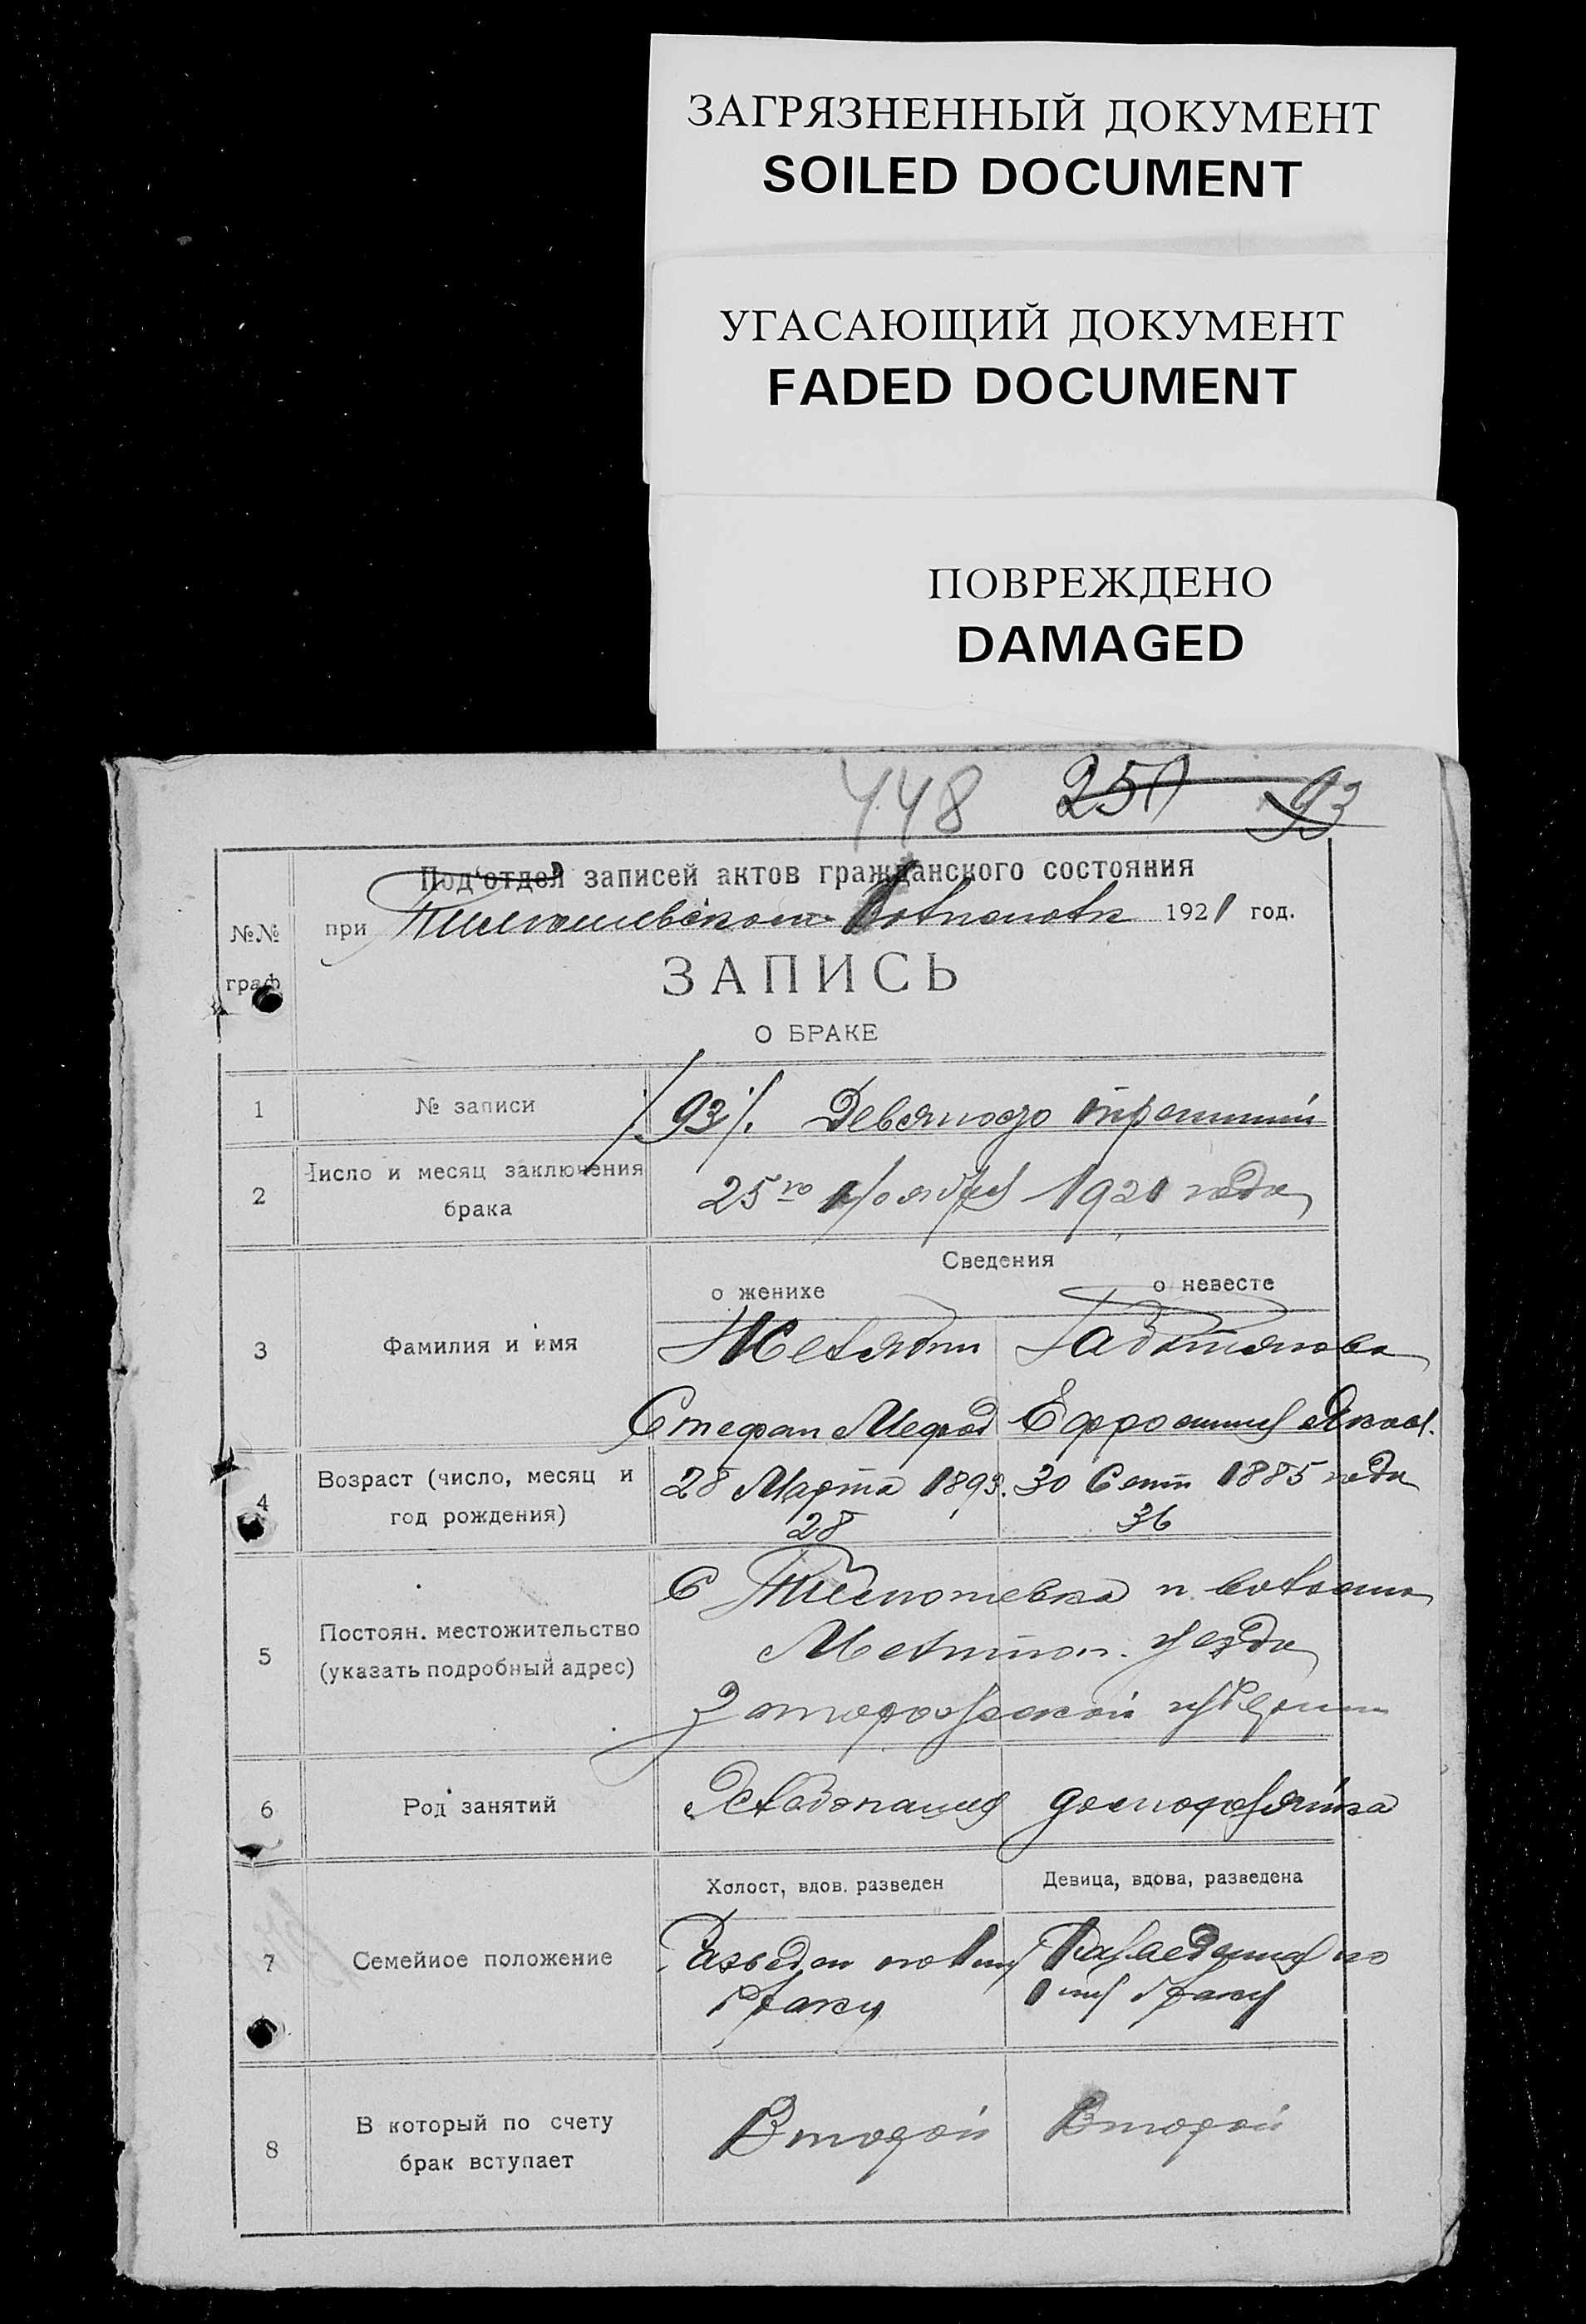 ЗАГРЯЗНЕННЫЙ ДОКУМЕНТ
SOILED DOCUMENT
УГАСАЮЩИЙ ДОКУМЕНТ
FADED DOCUMENT
ПОВРЕЖДЕНО
DAMAGED
448 93
Под‘отдел записей актов гражданского состояния
№№ граф
при 1921 год.
ЗАПИСЬ
О БРАКЕ
1 № записи 93 Девяносто третий
2 Число и месяц заключения
брака
25го ноября 1921 года
Сведения
о женихе о невесте
3 Фамилия и имя
Стефан Мефод Ефросиния
4 Возраст (число, месяц и
год рождения)
28 Марта 1893. 30 Сент 1885 года
28 36
5 Постоян. местожительство
(указать подробный адрес)
С Тимошевка
Мелитоп. уезда
Запорожской губернии
6 Род занятий
Хлебопашец домохозяйка
Холост, вдов. разведен Девица, вдова, разведена
7 Семейное положение
Разведен
браку браку
8 В который по счету
брак вступает
Второй Второй